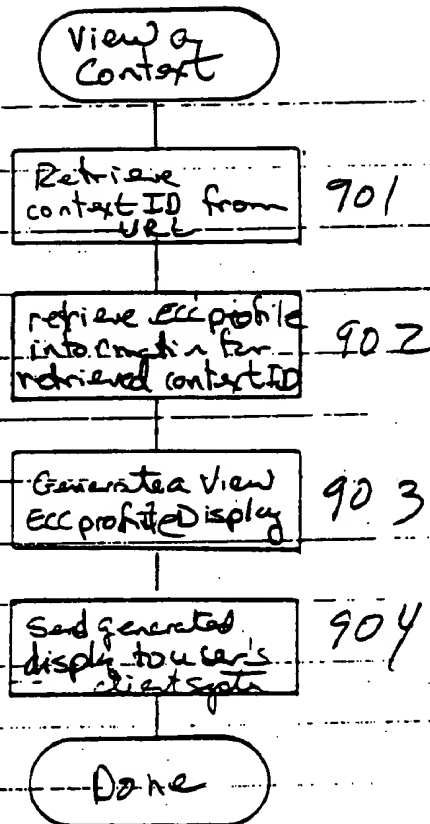 View a
Context
Retrieve
context ID from
URL
901
retrieve ECC profile
information for
retrieved context ID
902
Generate a View
ECC profile Display
903
Send generated
display to user's
client system
904
Done